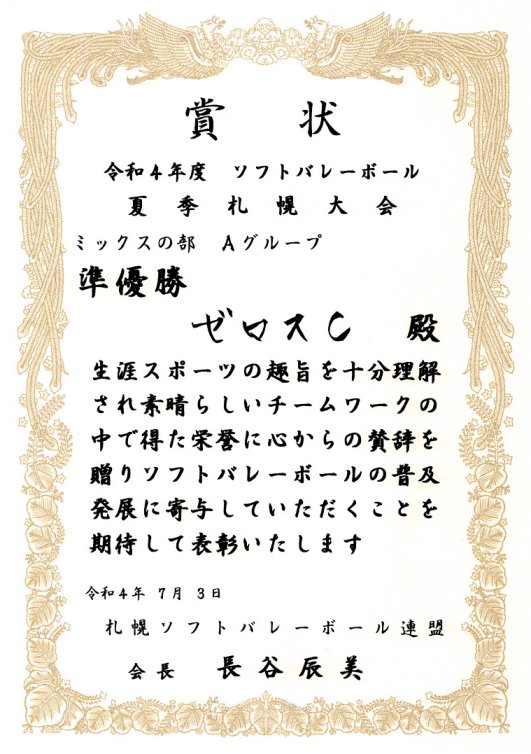 賞状
令和4年度 ソフトバレーボール
夏季札幌大会
ミックスの部 Aグループ
準優勝
ゼロスC 殿
生涯スポーツの趣旨を十分理解
され素晴らしいチームワークの
中で得た栄誉に心からの賛辞を
贈りソフトバレーボールの普及
発展に寄与していただくことを
期待して表彰いたします
令和4年 7月 3日
札幌ソフトバレーボール連盟
会長 長谷辰美